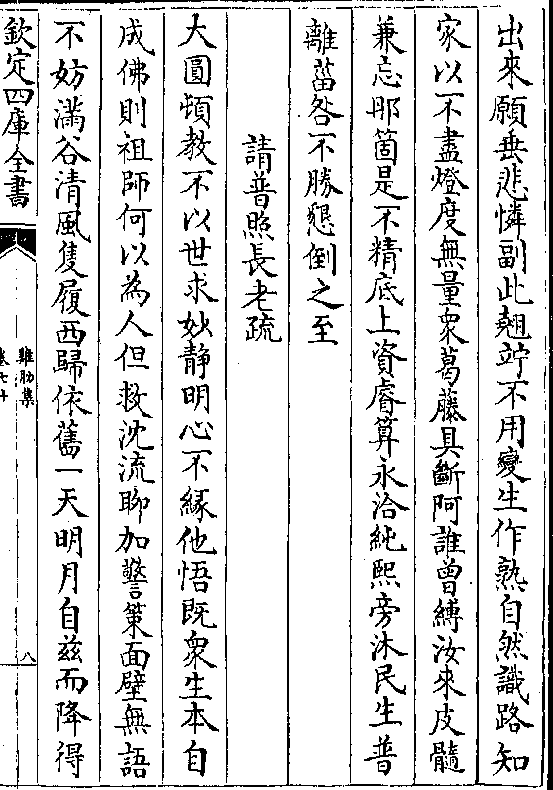 出來願垂悲憐副此翹竚不用變生作熟自然識路知
家以不盡燈度無量衆葛藤具斷阿誰曾縛汝來皮髓
兼忘那箇是不精底上資睿算永洽純熙旁沐民生普
離蓾咎不勝懇倒之至
請普照長老疏
大圓頓教不以世求妙静明心不緣他悟既衆生本自
成佛則祖師何以為人但救沈流聊加警策面壁無語
不妨滿谷清風隻履西歸依舊一天明月自兹而降得
欽定四庫全書
雞肋集
卷七十
八